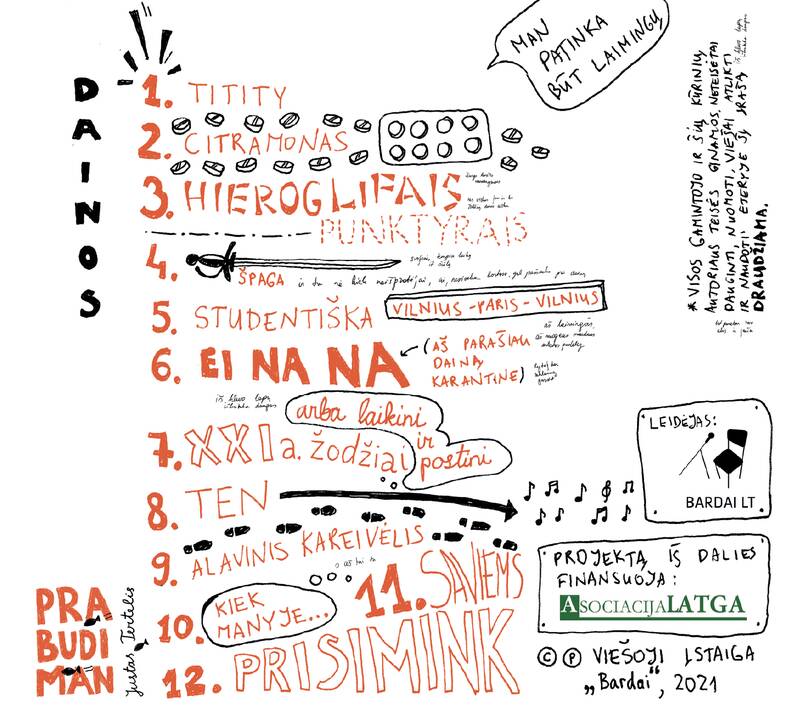 MAN
PATINKA
BŪT LAIMINGU
DAINOS
1. TITITY
2. CITRAMONAS
3. HIEROGLIFAIS
PUNKTYRAIS
4. ŠPAGA
5. STUDENTIŠKA
VILNIUS-PARIS-VILNIUS
6. EI NA NA
(AŠ PARAŠIAU
DAINĄ
KARANTINE)
7. XXI a. žodžiai
arba laikini
ir
postini
8. TEN
9. ALAVINIS KAREIVĖLIS
10. KIEK
MANYJE...
11. SAVIEMS
12. PRISIMINK
PRA
BUDI
MAN
Justas Tertelis
* VISOS GAMINTOJO IR ŠIŲ KŪRINIŲ
AUTORIAUS TEISĖS GINAMOS. NETEISĖTAI
DAUGINTI, NUOMOTI, VIEŠAI ATLIKTI
IR NAUDOTI ETERYJE ŠĮ ĮRAŠĄ
DRAUDŽIAMA.
LEIDĖJAS:
BARDAI LT
PROJEKTĄ IŠ DALIES
FINANSUOJA:
ASOCIACIJA LATGA
© ℗ VIEŠOJI ĮSTAIGA
„Bardai“, 2021